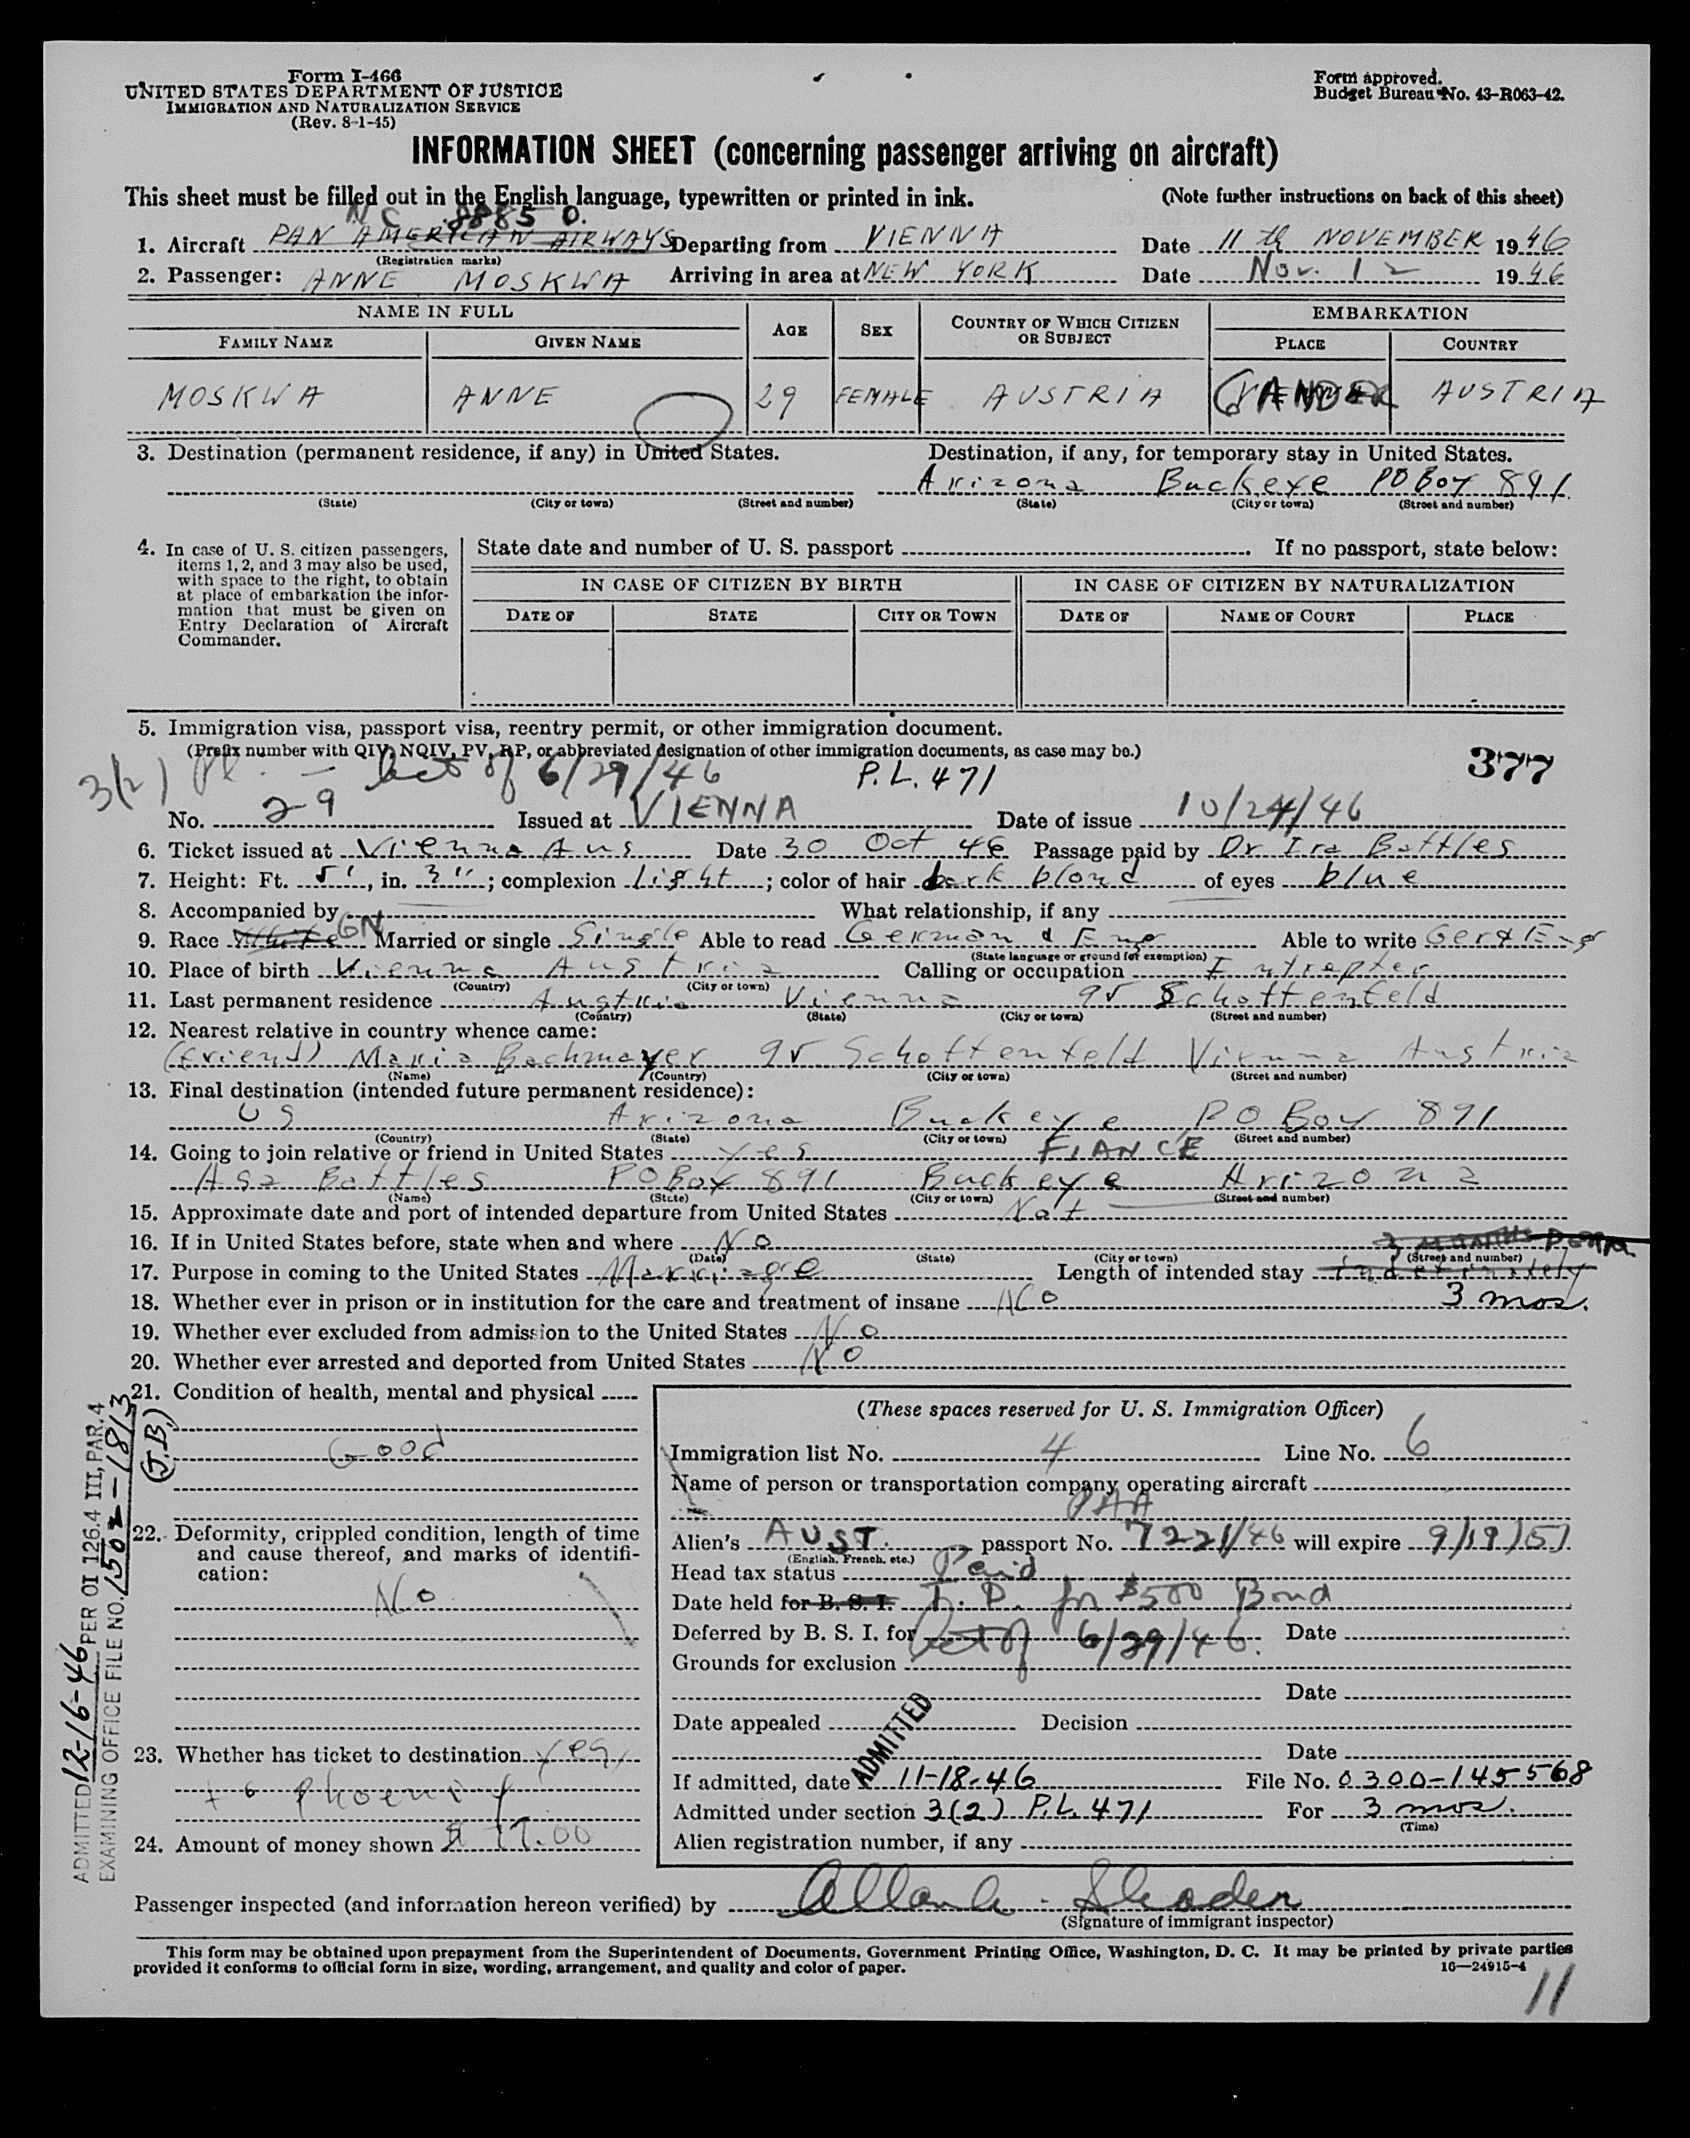 Form I-466
UNITED STATES DEPARTMENT OF JUSTICE
IMMIGRATION AND NATURALIZATION SERVICE
(Rev. 8-1-45)
Form approved.
Budget Bureau No. 43-R063-42.
INFORMATION SHEET (concerning passenger arriving on aircraft)
This sheet must be filled out in the English language, typewritten or printed in ink. (Note further instructions on back of this sheet)
NC 88850.
1. Aircraft PAN AMERICAN AIRWAYS Departing from VIENNA Date 11 th NOVEMBER 1946
(Registration marks)
2. Passenger: ANNE MOSKWA Arriving in area at NEW YORK Date Nov. 12 1946
NAME IN FULL AGE SEX COUNTRY OF WHICH CITIZEN OR SUBJECT EMBARKATION
FAMILY NAME GIVEN NAME PLACE COUNTRY
MOSKWA ANNE 29 FEMALE AUSTRIA GANDER AUSTRIA
3. Destination (permanent residence, if any) in United States. Destination, if any, for temporary stay in United States.
Arizona Buckeye PO Box 891
(State) (City or town) (Street and number) (State) (City or town) (Street and number)
4. In case of U. S. citizen passengers, items 1, 2, and 3 may also be used, with space to the right, to obtain at place of embarkation the information that must be given on Entry Declaration of Aircraft Commander.
State date and number of U. S. passport If no passport, state below:
IN CASE OF CITIZEN BY BIRTH IN CASE OF CITIZEN BY NATURALIZATION
DATE OF STATE CITY OR TOWN DATE OF NAME OF COURT PLACE
5. Immigration visa, passport visa, reentry permit, or other immigration document.
(Prefix number with QIV, NQIV, PV, RP, or abbreviated designation of other immigration documents, as case may be.)
377
3(2) PL. – Act of 6/29/46 P.L. 471
No. 29 Issued at VIENNA Date of issue 10/24/46
6. Ticket issued at Vienna Aus Date 30 Oct 46 Passage paid by Dr Ira Battles
7. Height: Ft. 5', in. 3"; complexion light; color of hair dark blond of eyes blue
8. Accompanied by What relationship, if any
9. Race White GN Married or single Single Able to read German & Eng Able to write Ger & Eng
(State language or ground for exemption)
10. Place of birth Vienna Austria Calling or occupation Intrepter
(Country) (City or town)
11. Last permanent residence Austria Vienna 95 Schottenfeld
(Country) (State) (City or town) (Street and number)
12. Nearest relative in country whence came:
(friend) Maria Bachmayer 95 Schottenfeld Vienna Austria
(Name) (Country) (City or town) (Street and number)
13. Final destination (intended future permanent residence):
US Arizona Buckeye PO Box 891
(Country) (State) (City or town) (Street and number)
14. Going to join relative or friend in United States yes FIANCÉ
Asa Battles PO Box 891 Buckeye Arizona
(Name) (State) (City or town) (Street and number)
15. Approximate date and port of intended departure from United States Not
16. If in United States before, state when and where No 3 MONTHS
(Date) (State) (City or town) (Street and number)
17. Purpose in coming to the United States Marriage Length of intended stay indefinitely
18. Whether ever in prison or in institution for the care and treatment of insane No 3 mos.
19. Whether ever excluded from admission to the United States No
20. Whether ever arrested and deported from United States No
21. Condition of health, mental and physical
Good
22. Deformity, crippled condition, length of time and cause thereof, and marks of identification:
No
23. Whether has ticket to destination yes,
to Phoenix
24. Amount of money shown $ 77.00
(These spaces reserved for U. S. Immigration Officer)
Immigration list No. 4 Line No. 6
Name of person or transportation company operating aircraft
PAA
Alien's AUST. passport No. 7221/46 will expire 9/19/51
(English, French, etc.)
Head tax status Paid
Date held for B. S. I. T. D. for $500 Bond
Deferred by B. S. I. for Act of 6/29/46. Date
Grounds for exclusion
Date
Date appealed Decision
Date
ADMITTED
If admitted, date 11-18-46 File No. 0300-145568
Admitted under section 3(2) P.L. 471 For 3 mos.
(Time)
Alien registration number, if any
ADMITTED 12-16-46 PER OI 126.4 III, PAR. 4
EXAMINING OFFICE FILE NO. 1502-1813
(J.B.)
Passenger inspected (and information hereon verified) by
(Signature of immigrant inspector)
This form may be obtained upon prepayment from the Superintendent of Documents, Government Printing Office, Washington, D. C. It may be printed by private parties
provided it conforms to official form in size, wording, arrangement, and quality and color of paper. 16—24915-4
11